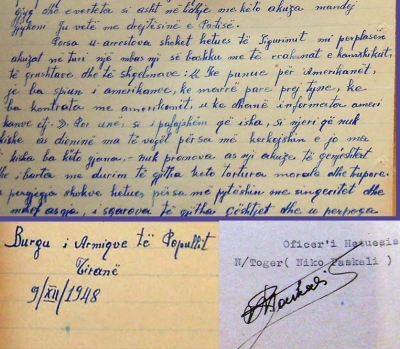 dhe e verteta si asht në lidhje me këto akuza mandej
gjykem Ju vetë me drejtësinë e Partisë.
Persa u-arrestova shokët hetues të Sigurimit mi perplasën
akuzat në turi një mbas një së bashku me të rrahunat e kamshikut,
të grushtave dhe të shqelmave: Ke punue për Amerikanët,
je ba spiun i amerikanve, ke marrë pare prej tyne, ke
ba kontrata me amerikanët, u ke dhanë informata ameri
kanve etj. Por unë, si i pafajshëm që isha, si njeri që nuk
kishe as dieninë ma të vogël përsa më kërkojshin e jo ma
kisha ba këto gjana, nuk pranova as nji akuzë të genjeshtert
dhe i barta me durim të gjitha keto tortura morale dhe trupore.
pergjigja shokve hetues përsa më pyetëshin me singeritet dhe
asgja, i sqarova të gjitha çështjet dhe u perpoqa
Burgu i Armiqve të Popullit
Tiranë
9/XII/1948
Oficer'i Hetuesis
N/Toger( Niko Paskali )